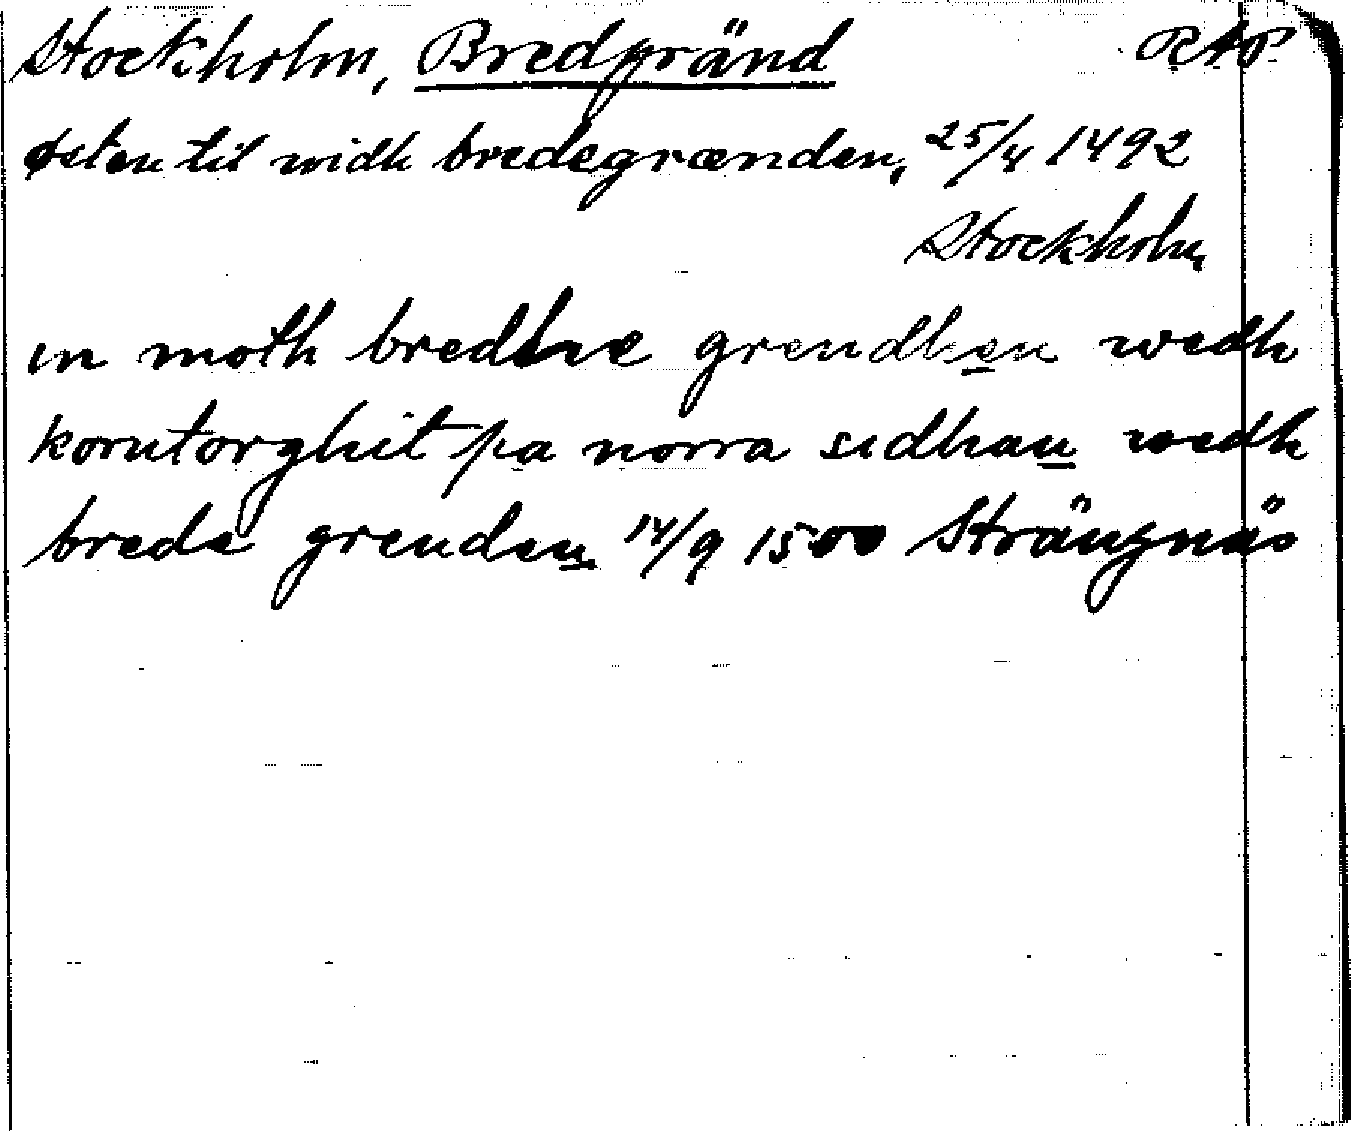 Stockholm, Bredgränd RAP
østen til widh bredegrænden, 25/4 1492
Stockholm
in moth bredhe grendhen wedh
korntorghit pa norra sidhan wedh
brede grenden 14/9 1500 Strängnäs